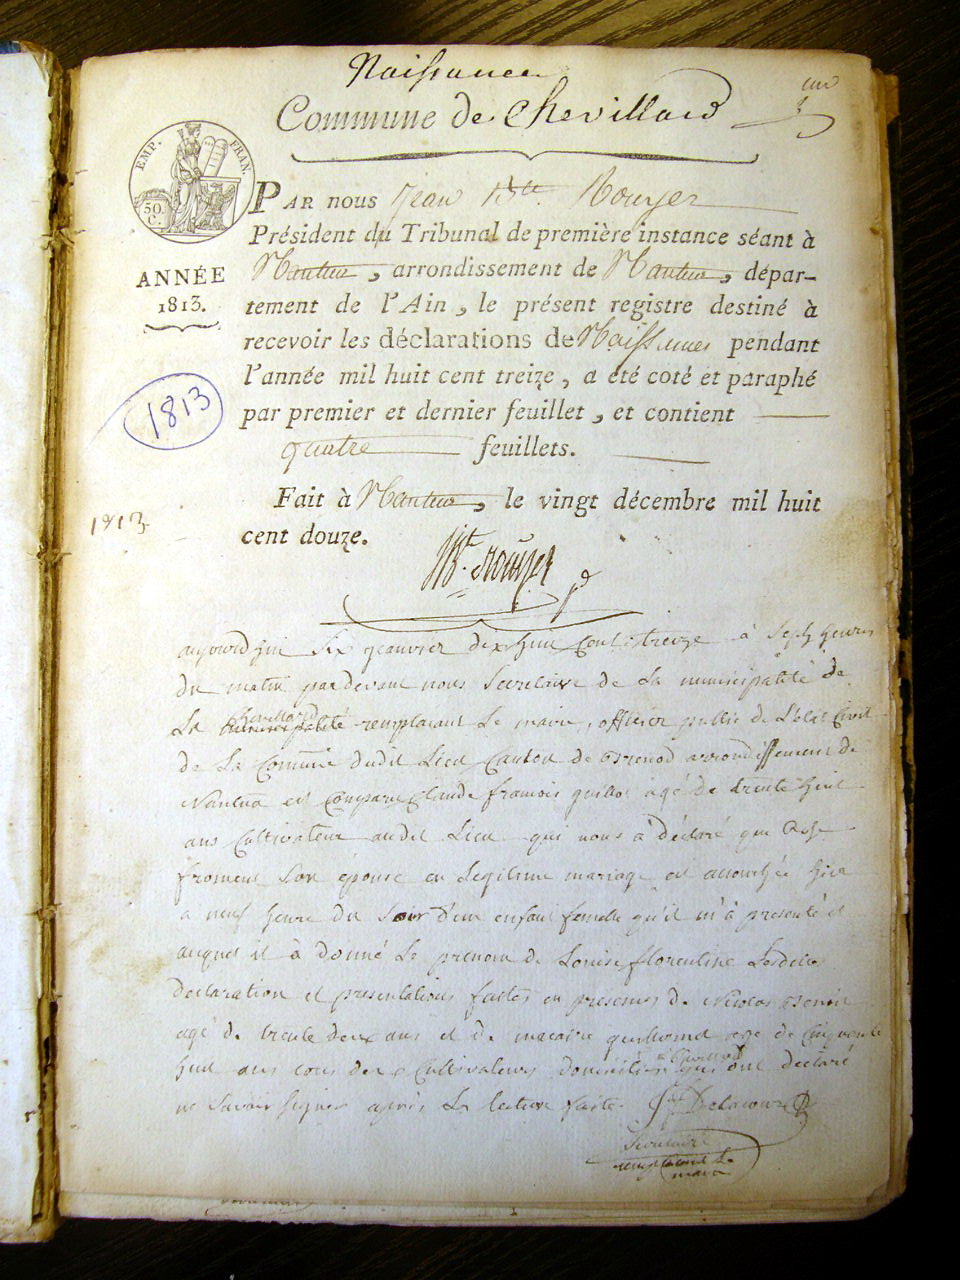 Naissances
un
Commune de Chevillard
EMP. FRAN.
50. C.
PAR nous Jean Bte. Rouyer
Président du Tribunal de première instance séant à
Nantua, arrondissement de Nantua, dépar-
ANNÉE
1813.
tement de l'Ain, le présent registre destiné à
recevoir les déclarations de Naissances pendant
l'année mil huit cent treize, a été coté et paraphé
1813
par premier et dernier feuillet, et contient
quatre feuillets.
Fait à Nantua, le vingt décembre mil huit
1813
cent douze.
JBte. Rouyer
aujourd'hui six janvier dix huit Cent treize à Sept heures
du matin pardevant nous Secretaire de La municipalité de
La Chevillard remplacant Le maire, officier public de L'etat Civil
de La Commune dudit Lieu Canton de Brenod arrondissement de
Nantua est Comparu Claude francois guillot agé de trente huit
ans Cultivateur audit Lieu qui nous a déclaré que Rose
froment Son épouse en Legitime mariage est accouchée hier
a neuf heure du Soir d'un enfant femelle qu'il m'a presenté et
auquel il à donné Le prenom de Louise florentine Lesdites
declaration et presentations faites en présences de Nicolas Benoit
agé de trente deux ans et de macaire guillermet age de Cinquante
huit ans tous deux Cultivateurs domiciliés a Chevillard qui ont déclaré
ne Savoir Signer après La lecture faite. Delacour
Secretaire
remplacant Le
maire